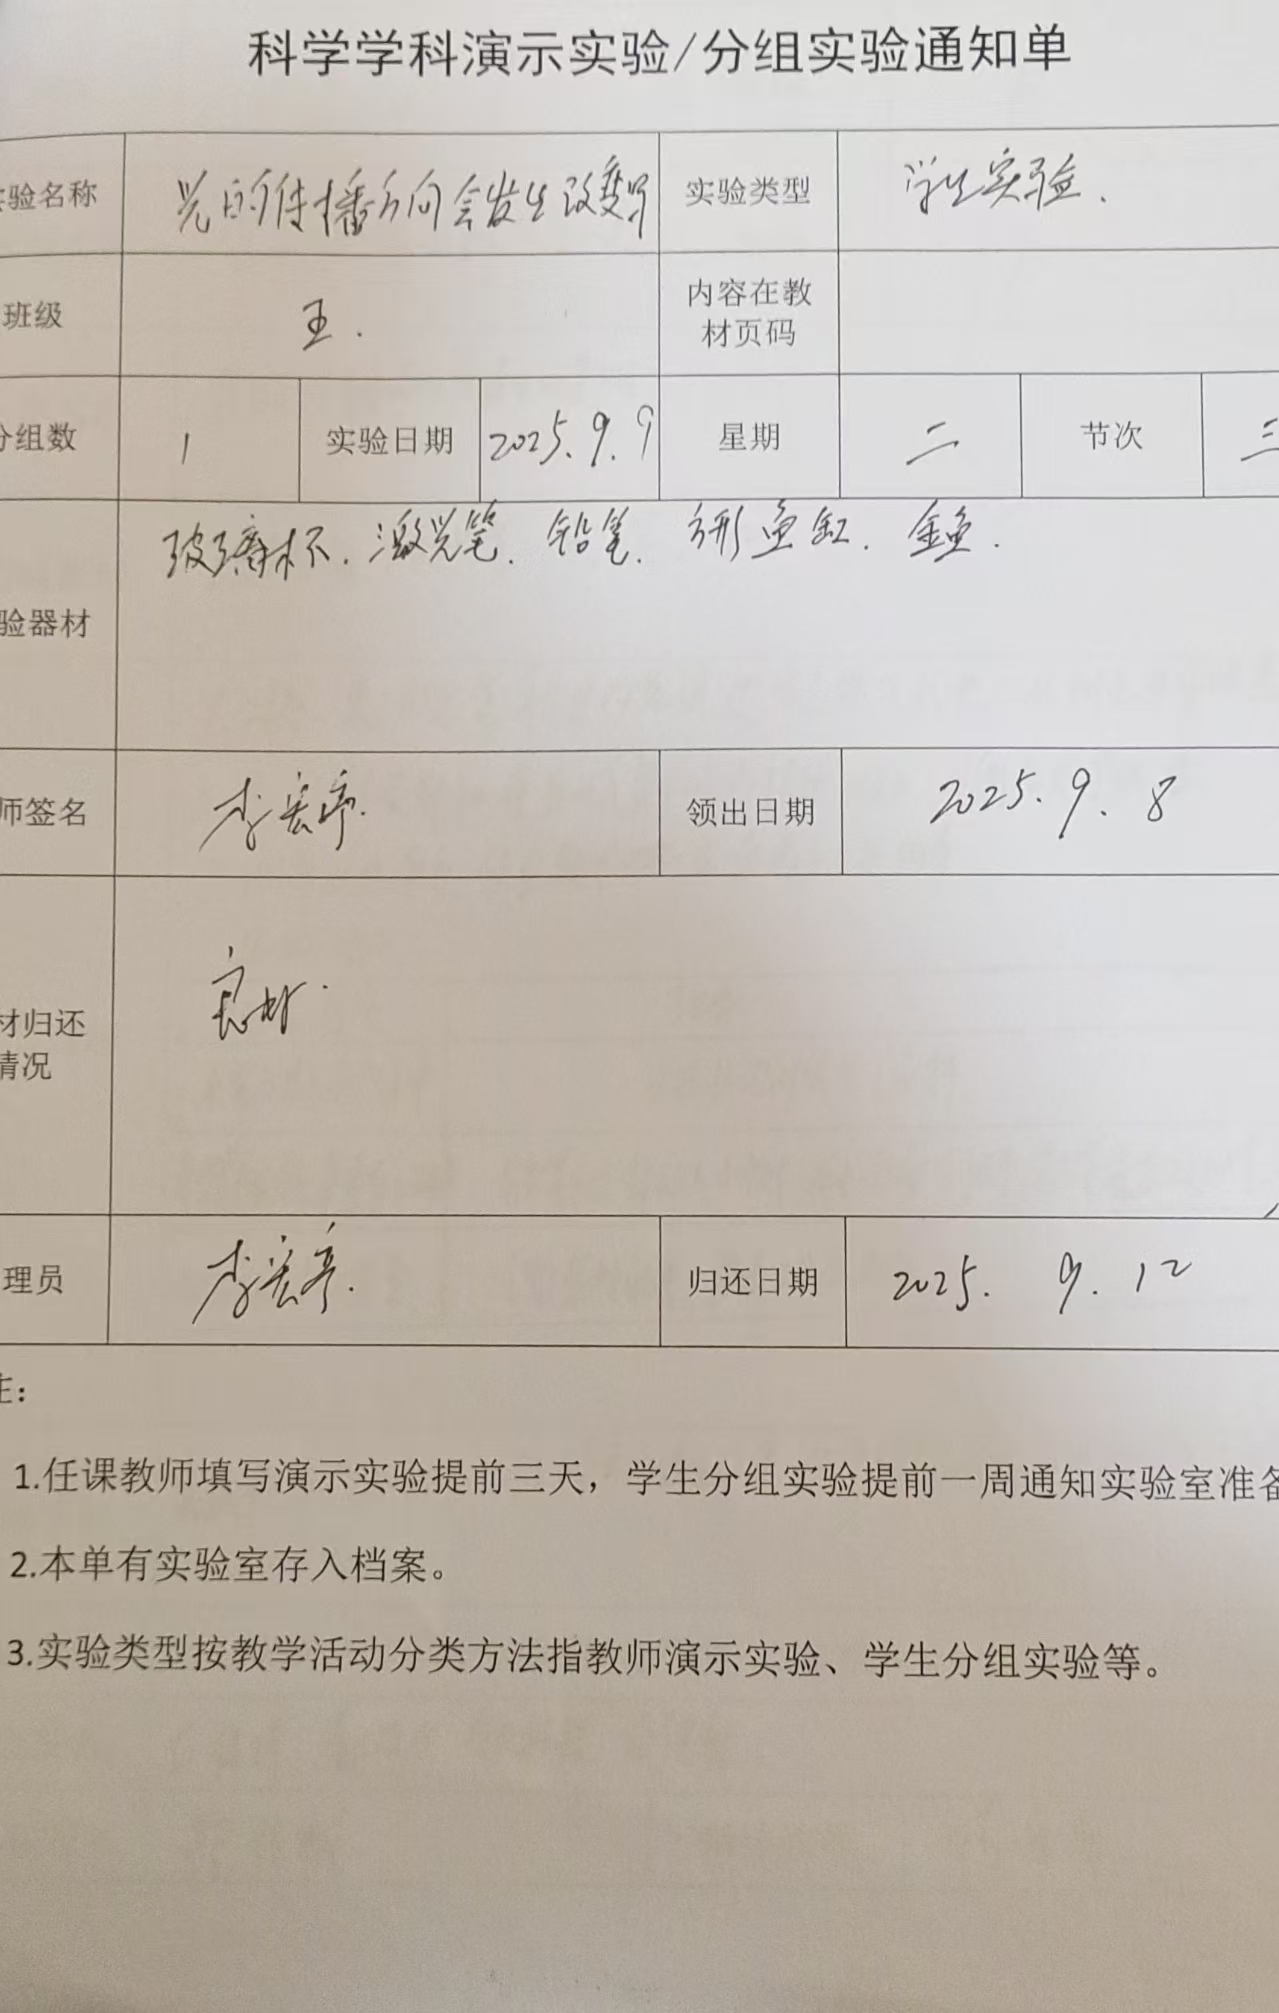 科学学科演示实验/分组实验通知单
验名称 光的传播方向会发生改变吗 实验类型 学生实验.
班级 五. 内容在教材页码
分组数 1 实验日期 2025.9.9 星期 二 节次 三
验器材 玻璃杯.激光笔.铅笔.方形鱼缸.金鱼.
师签名 李宏亭. 领出日期 2025.9.8
材归还情况 良好.
理员 李宏亭. 归还日期 2025. 9.12
注:
1.任课教师填写演示实验提前三天，学生分组实验提前一周通知实验室准备
2.本单有实验室存入档案。
3.实验类型按教学活动分类方法指教师演示实验、学生分组实验等。